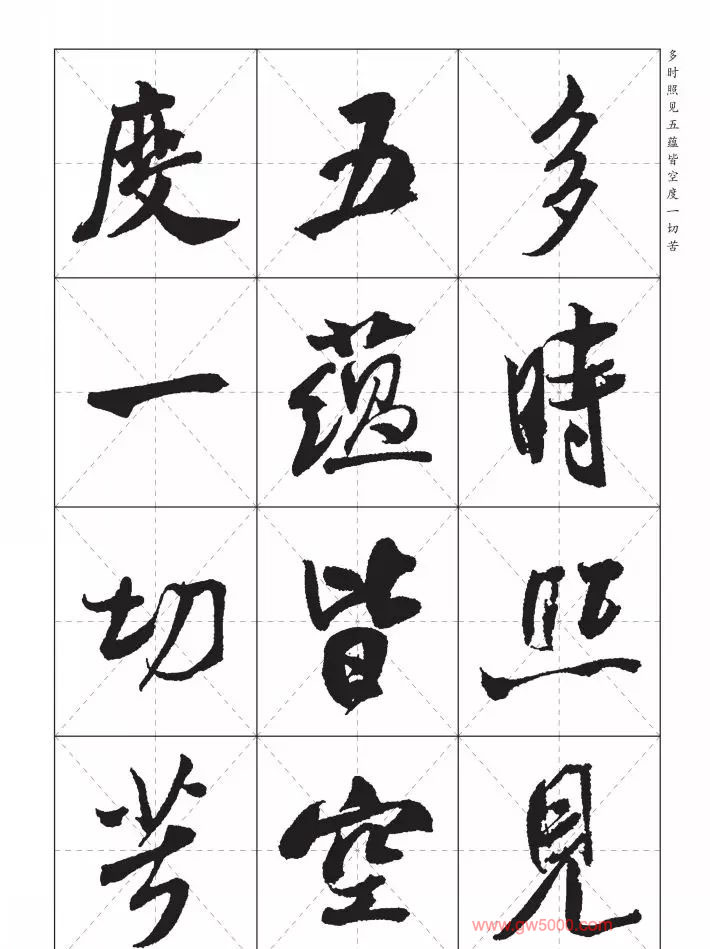 多时照见五蕴皆空度一切苦
多時照見
五蘊皆空
度一切苦
www.gw5000.com